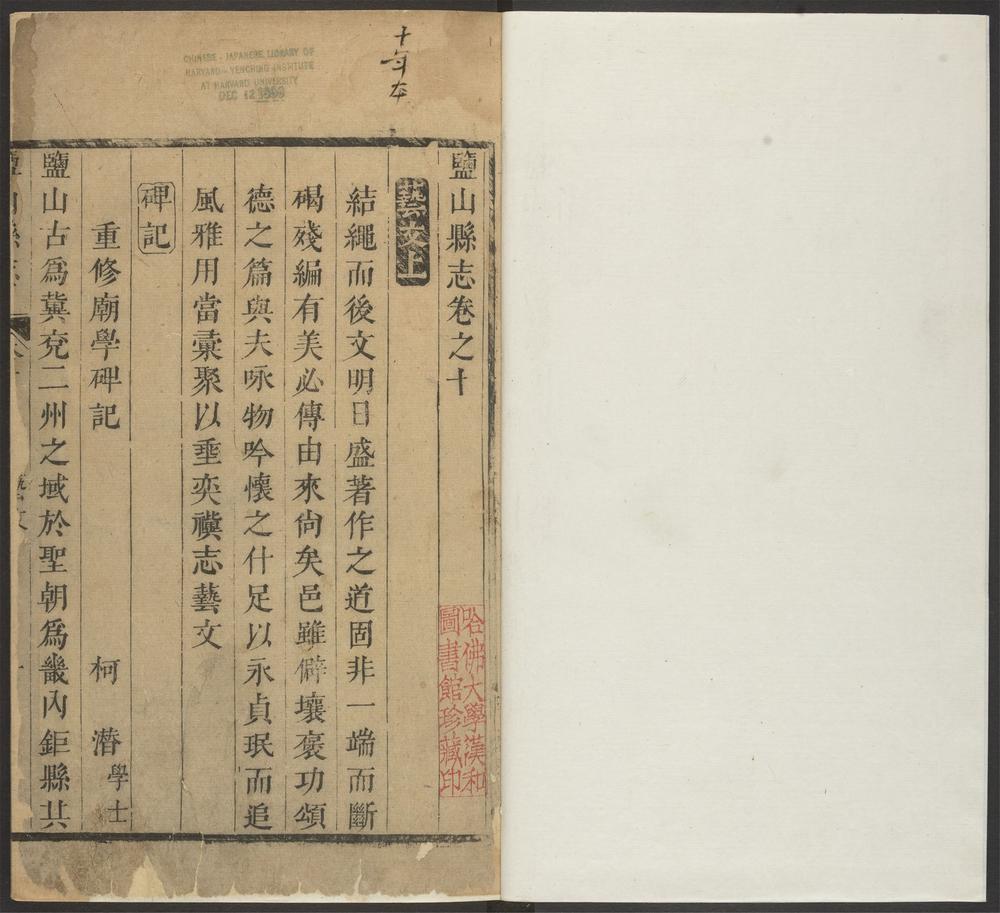 十年本
CHINESE - JAPANESE LIBRARY OF
HARVARD - YENCHING INSTITUTE
AT HARVARD UNIVERSITY
DEC 12
鹽山縣志卷之十
哈佛大學漢和
圖書館珍藏印
藝文上
結繩而後文明日盛著作之道固非一端而斷
碣殘編有美必傳由來尙矣邑雖僻壤褒功頌
德之篇與夫咏物吟懷之什足以永貞珉而追
風雅用當彙聚以垂奕禩志藝文
碑記
重修廟學碑記 柯 潛 學士
鹽山古爲冀兗二州之域於聖朝爲畿內鉅縣其